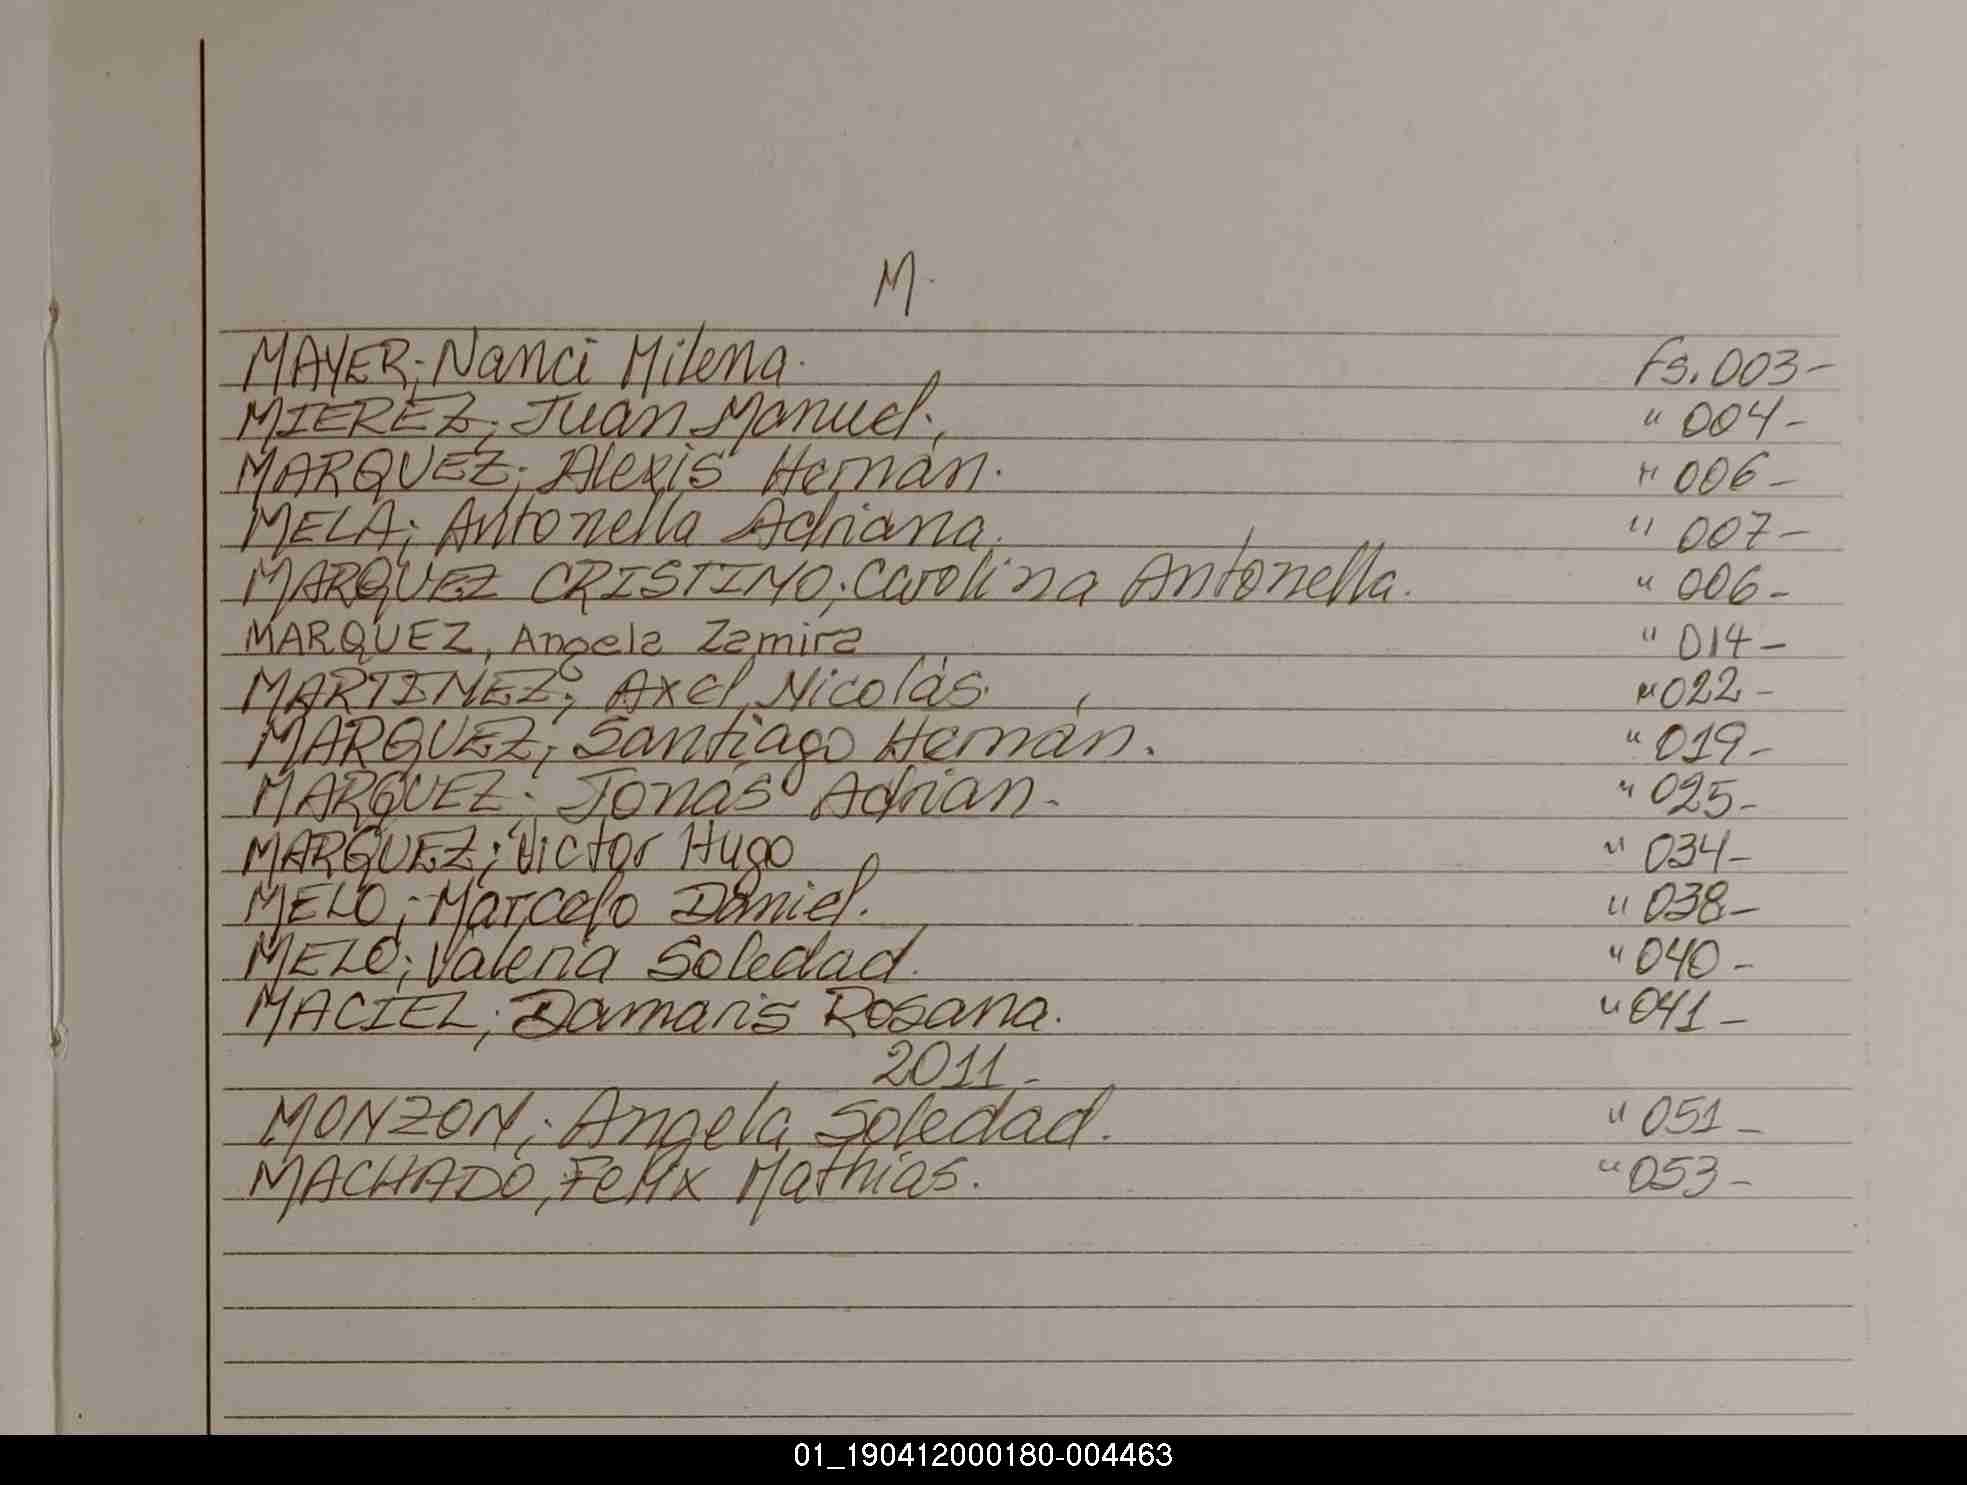 M.
MAYER; Nanci Milena. Fs. 003-
MIEREZ; Juan Manuel. " 004-
MARQUEZ; Alexis Hernán. " 006-
MELA; Antonella Adriana. " 007-
MARQUEZ CRISTINO; Carolina Antonella. " 006-
MARQUEZ, Angela Zamira " 014-
MARTINEZ; Axel Nicolás. " 022-
MARQUEZ; Santiago Hernán. " 019-
MARQUEZ. Jonás Adrian. " 025-
MARQUEZ; Victor Hugo " 034-
MELO; Marcelo Daniel. " 038-
MELO; Valeria Soledad. " 040-
MACIEL; Damaris Rosana. " 041-
2011-
MONZON; Angela Soledad. " 051-
MACHADO, Felix Mathias. " 053-
01_190412000180-004463